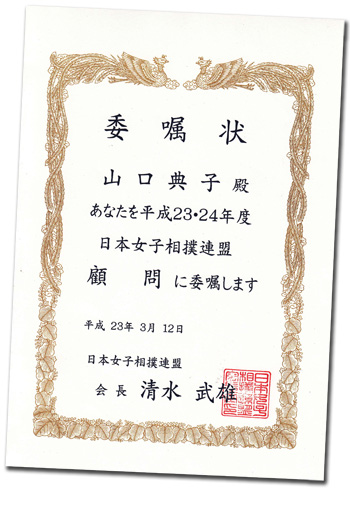 委嘱状
山口典子 殿
あなたを平成23・24年度
日本女子相撲連盟
顧問に委嘱します
平成 23年 3月 12日
日本女子相撲連盟
会長 清水 武雄